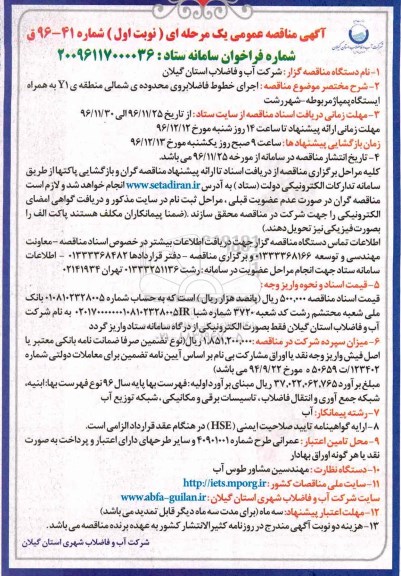 آگهی مناقصه عمومی یک مرحله ای ( نوبت اول ) شماره ۴۱-۹۶ ق
شماره فراخوان سامانه ستاد : ۲۰۰۹۶۱۱۷۰۰۰۰۳۶
۱-نام دستگاه مناقصه گزار : شرکت آب و فاضلاب استان گیلان
۲- شرح مختصر موضوع مناقصه: اجرای خطوط فاضلابروی محدوده ی شمالی منطقه ی Y1 به همراه
ایستگاه پمپاژ مربوطه-شهر رشت
۳- مهلت زمانی دریافت اسناد مناقصه از سایت ستاد : از تاریخ ۹۶/۱۱/۲۵ الی ۹۶/۱۱/۳۰
مهلت زمانی ارائه پیشنهاد تا ساعت ۱۴ روز شنبه مورخ ۹۶/۱۲/۱۲
زمان بازگشایی پیشنهادها: ساعت ۹ صبح روز یکشنبه مورخ ۹۶/۱۲/۱۳
۴- تاریخ انتشار مناقصه در سامانه از مورخه ۹۶/۱۱/۲۵ می باشد.
کلیه مراحل برگزاری مناقصه از دریافت اسناد تا ارائه پیشنهاد مناقصه گران و بازگشایی پاکتها از طریق
سامانه تدارکات الکترونیکی دولت (ستاد) به آدرس www.setadiran.ir انجام خواهد شد و لازم است
مناقصه گران در صورت عدم عضویت قبلی ، مراحل ثبت نام در سایت مذکور و دریافت گواهی امضای
الکترونیکی را جهت شرکت در مناقصه محقق سازند .(ضمنا پیمانکاران مکلف هستند پاکت الف را
بصورت فیزیکی نیز تحویل دهند.)
اطلاعات تماس دستگاه مناقصه گزار جهت دریافت اطلاعات بیشتر در خصوص اسناد مناقصه - معاونت
مهندسی و توسعه ۰۱۳۳۳۳۶۸۱۶۶ و برگزاری مناقصه - دفتر قراردادها ۰۱۳۳۳۳۶۸۴۸۲ - اطلاعات
سامانه ستاد جهت انجام مراحل عضویت در سامانه : رشت ۰۱۳۳۳۲۵۱۱۳۶ تهران ۰۲۱۴۱۹۳۴
۵- قیمت اسناد و نحوه واریز وجه:
قیمت اسناد مناقصه ۵۰۰,۰۰۰ ریال (پانصد هزار ریال) است که به حساب شماره ۰۱۰۸۱۰۲۳۲۸۰۰۵ بانک
ملی شعبه محتشم رشت کد شعبه ۳۷۲۰ شماره شبا به نام شرکت
آب و فاضلاب استان گیلان فقط بصورت الکترونیکی از درگاه سامانه ستاد واریز گردد
۶- میزان سپرده شرکت در مناقصه: ۱,۸۵۱,۲۰۰,۰۰۰ ریال(نوع تضمین صرفا ضمانت نامه بانکی معتبر یا
اصل فیش واریز وجه نقد یا اوراق مشارکت بی نام بر اساس آیین نامه تضمین برای معاملات دولتی شماره
۱۲۳۴۰۲/ت ۵۰۶۵۹ ه مورخ ۹۴/۹/۲۲ می باشد)
مبلغ برآورد ۳۷,۰۲۲,۰۶۲,۷۶۵ ریال مبنای برآورد اولیه: فهرست بها پایه سال ۹۶ نوع فهرست بها: ابنیه،
شبکه جمع آوری و انتقال فاضلاب ، تاسیسات برقی و مکانیکی ، شبکه توزیع آب
۷- رشته پیمانکار: آب
۸- ارایه گواهینامه تایید صلاحیت ایمنی (HSE) در هنگام عقد قرارداد الزامی است.
۹- محل تامین اعتبار : عمرانی طرح شماره ۴۰۹۰۱۰۰۱ و سایر طرحهای دارای اعتبار و پرداخت به صورت
نقد یا هر گونه اوراق بهادار
۱۰- دستگاه نظارت : مهندسین مشاور طوس آب
۱۱- سایت ملی مناقصات کشور : http://iets.mporg.ir
سایت شرکت آب و فاضلاب شهری استان گیلان : www.abfa-guilan.ir
۱۲- مهلت اعتبار پیشنهاد: سه ماه (برای مدت سه ماه دیگر قابل تمدید می باشد)
۱۳- هزینه دو نوبت آگهی مندرج در روزنامه کثیرالانتشار کشور به عهده برنده مناقصه می باشد.
شرکت آب و فاضلاب شهری استان گیلان